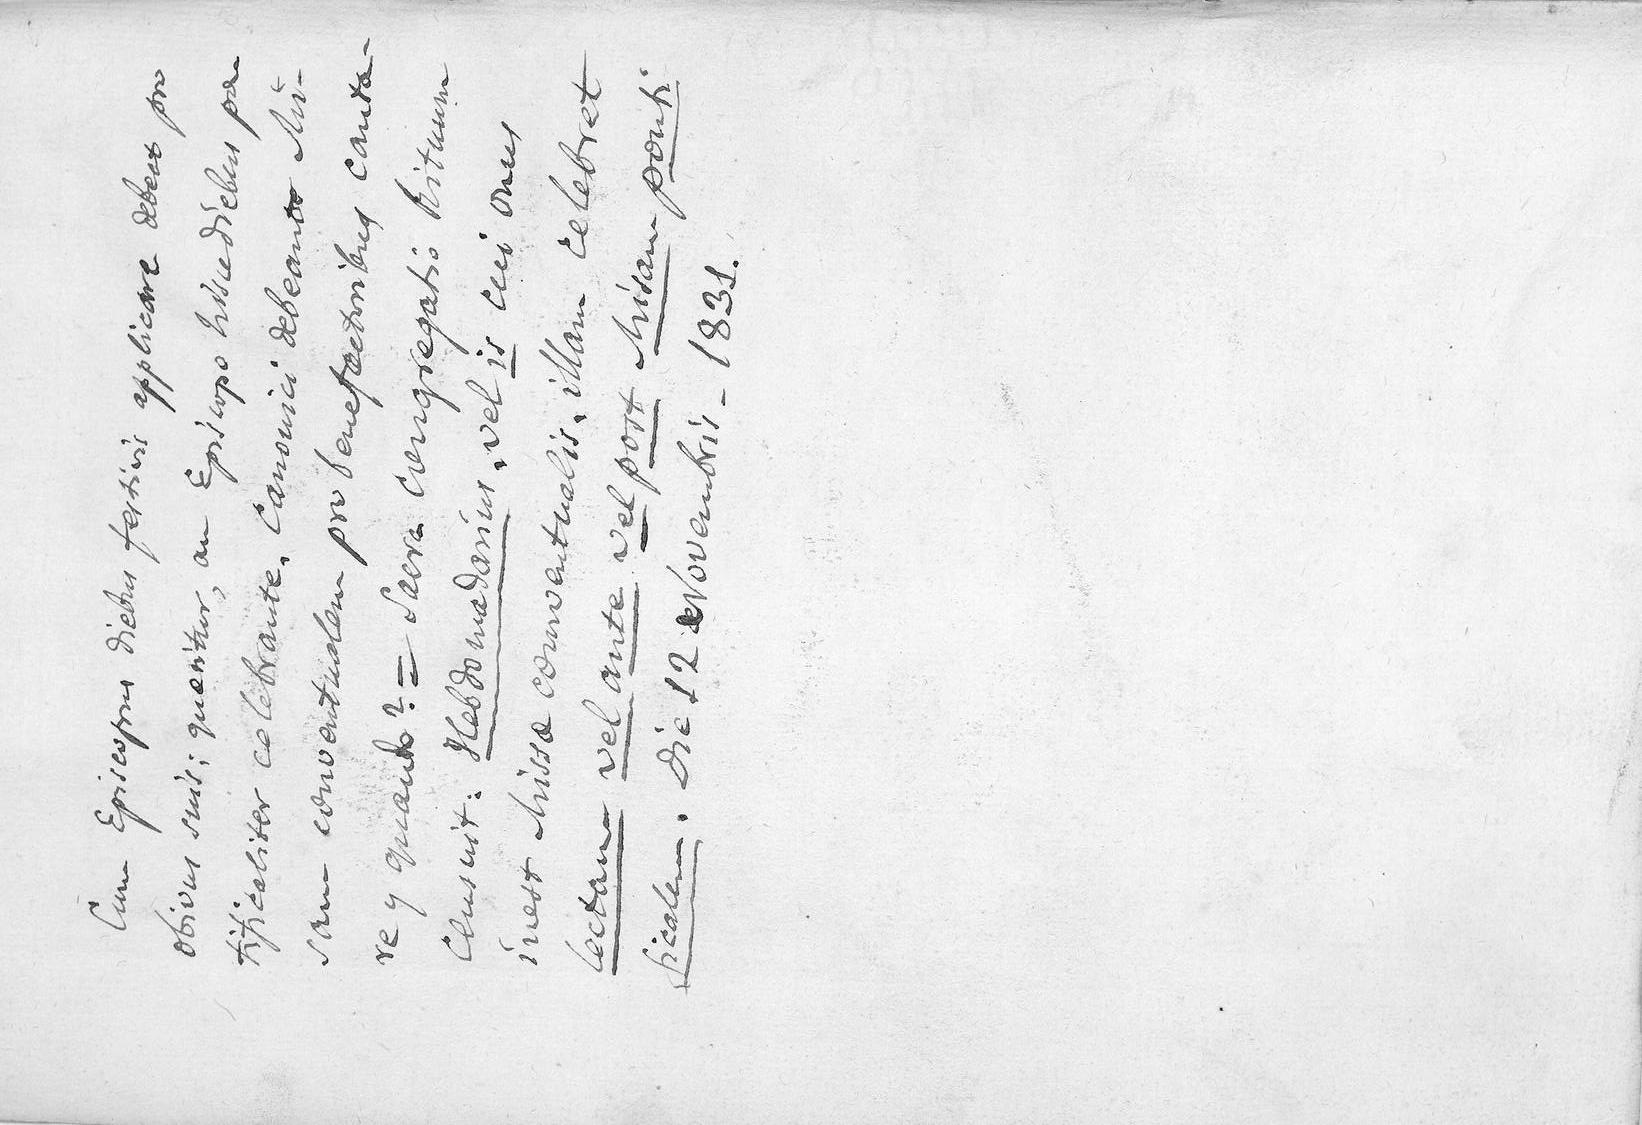 Cum Episcopus diebus festivis applicare debeat pro
obivus suis; quæritur, an Episcopo hisce diebus pon
tificaliter celebrante, Canonici debeant Mis-
sam conventualem pro benefactoribus canta-
re, quando? = Sacra Congregatio Rituum
Censuit: Hebdomadarius, vel is cui onus
inest Missæ conventualis, illam celebret
lectam vel ante vel post Missam ponti
ficalem. Die 12 Novembris - 1831.